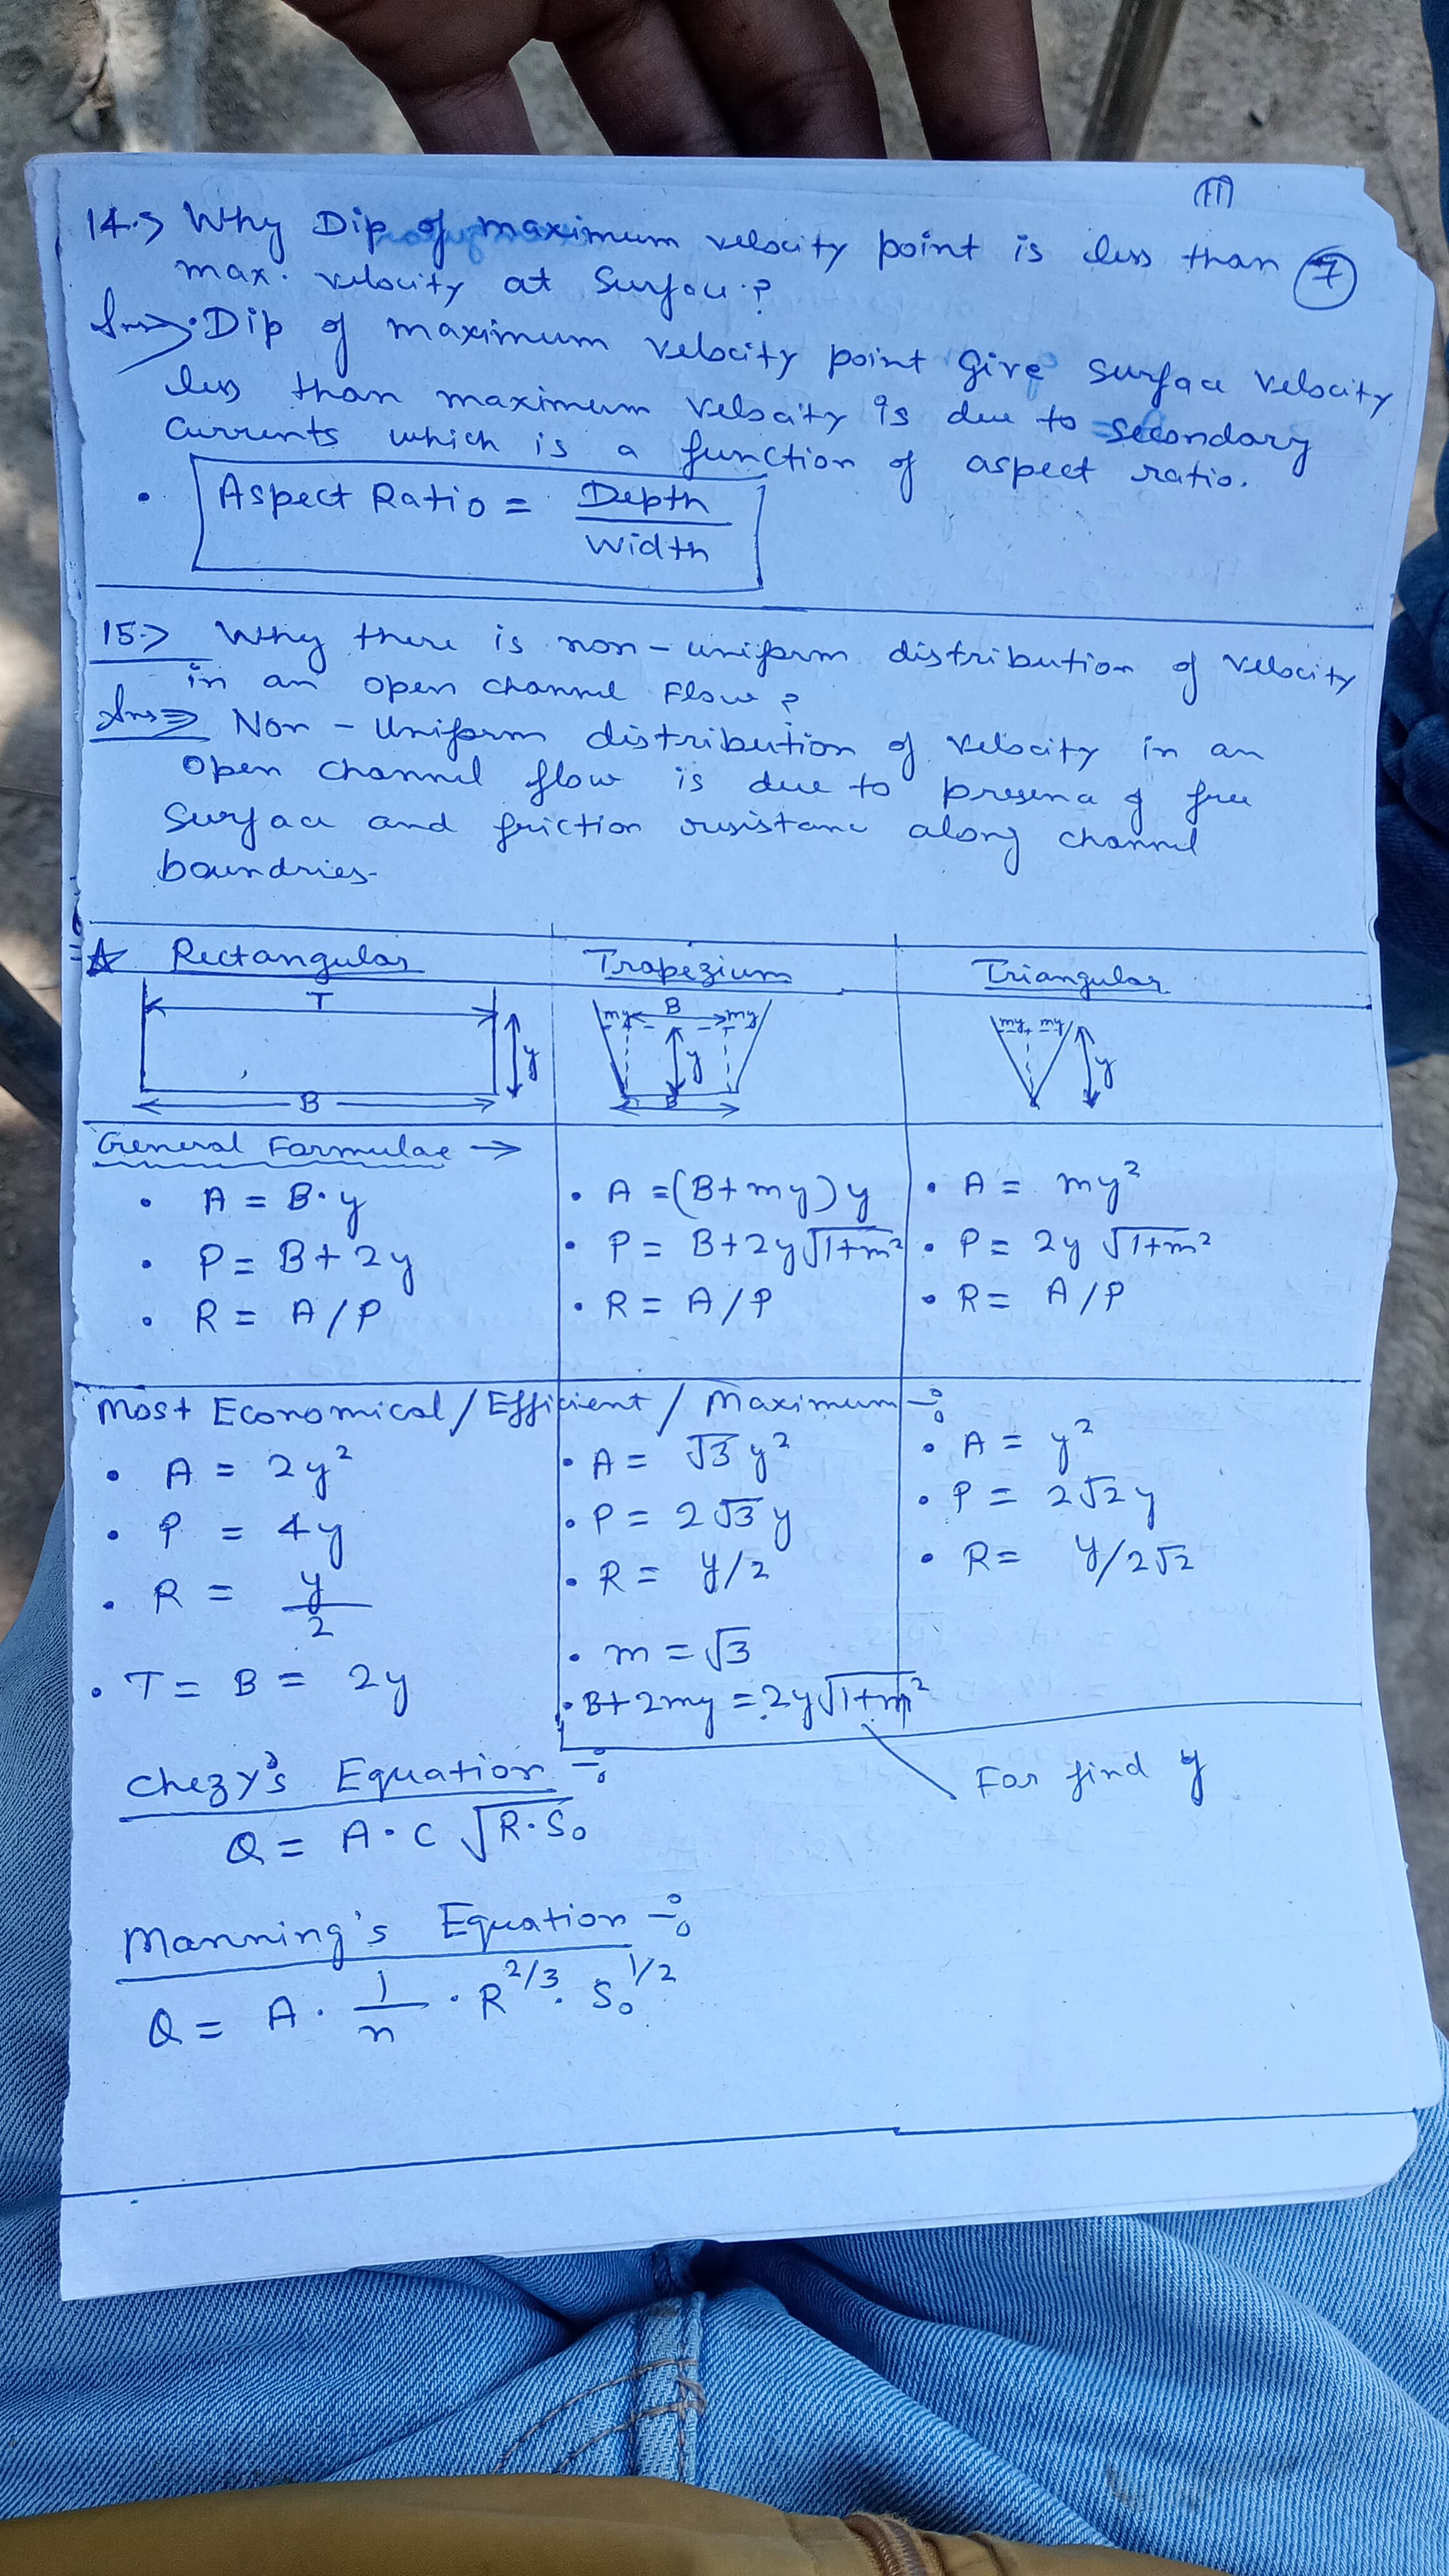 14.> Why Dip of maximum velocity point is less than 7
max. velocity at Surface.?
Ans⇒ • Dip of maximum velocity point Give surface velocity
less than maximum velocity is due to secondary
currents which is a function of aspect ratio.
• Aspect Ratio = Depth / Width
15.> Why there is non-uniform distribution of velocity
in an open channel Flow?
Ans⇒ Non-Uniform distribution of velocity in an
open channel flow is due to presence of free
surface and friction resistance along channel
boundries.
☆ Rectangular Trapezium Triangular
T y B
my B my y B
my my y
General Formulae →
• A = B·y • A = (B+my)y • A = my²
• P = B+2y • P = B+2y√1+m² • P = 2y √1+m²
• R = A/P • R = A/P • R = A/P
Most Economical/Efficient/Maximum÷
• A = 2y² • A = √3 y² • A = y²
• P = 4y • P = 2√3 y • P = 2√2 y
• R = y/2 • R = y/2 • R = y/2√2
• T = B = 2y • m = √3
• B+2my = 2y√1+m²
For find y
Chezy's Equation ÷
Q = A·C √R·S₀
Manning's Equation ÷
Q = A · 1/n · R^2/3 · S₀^1/2